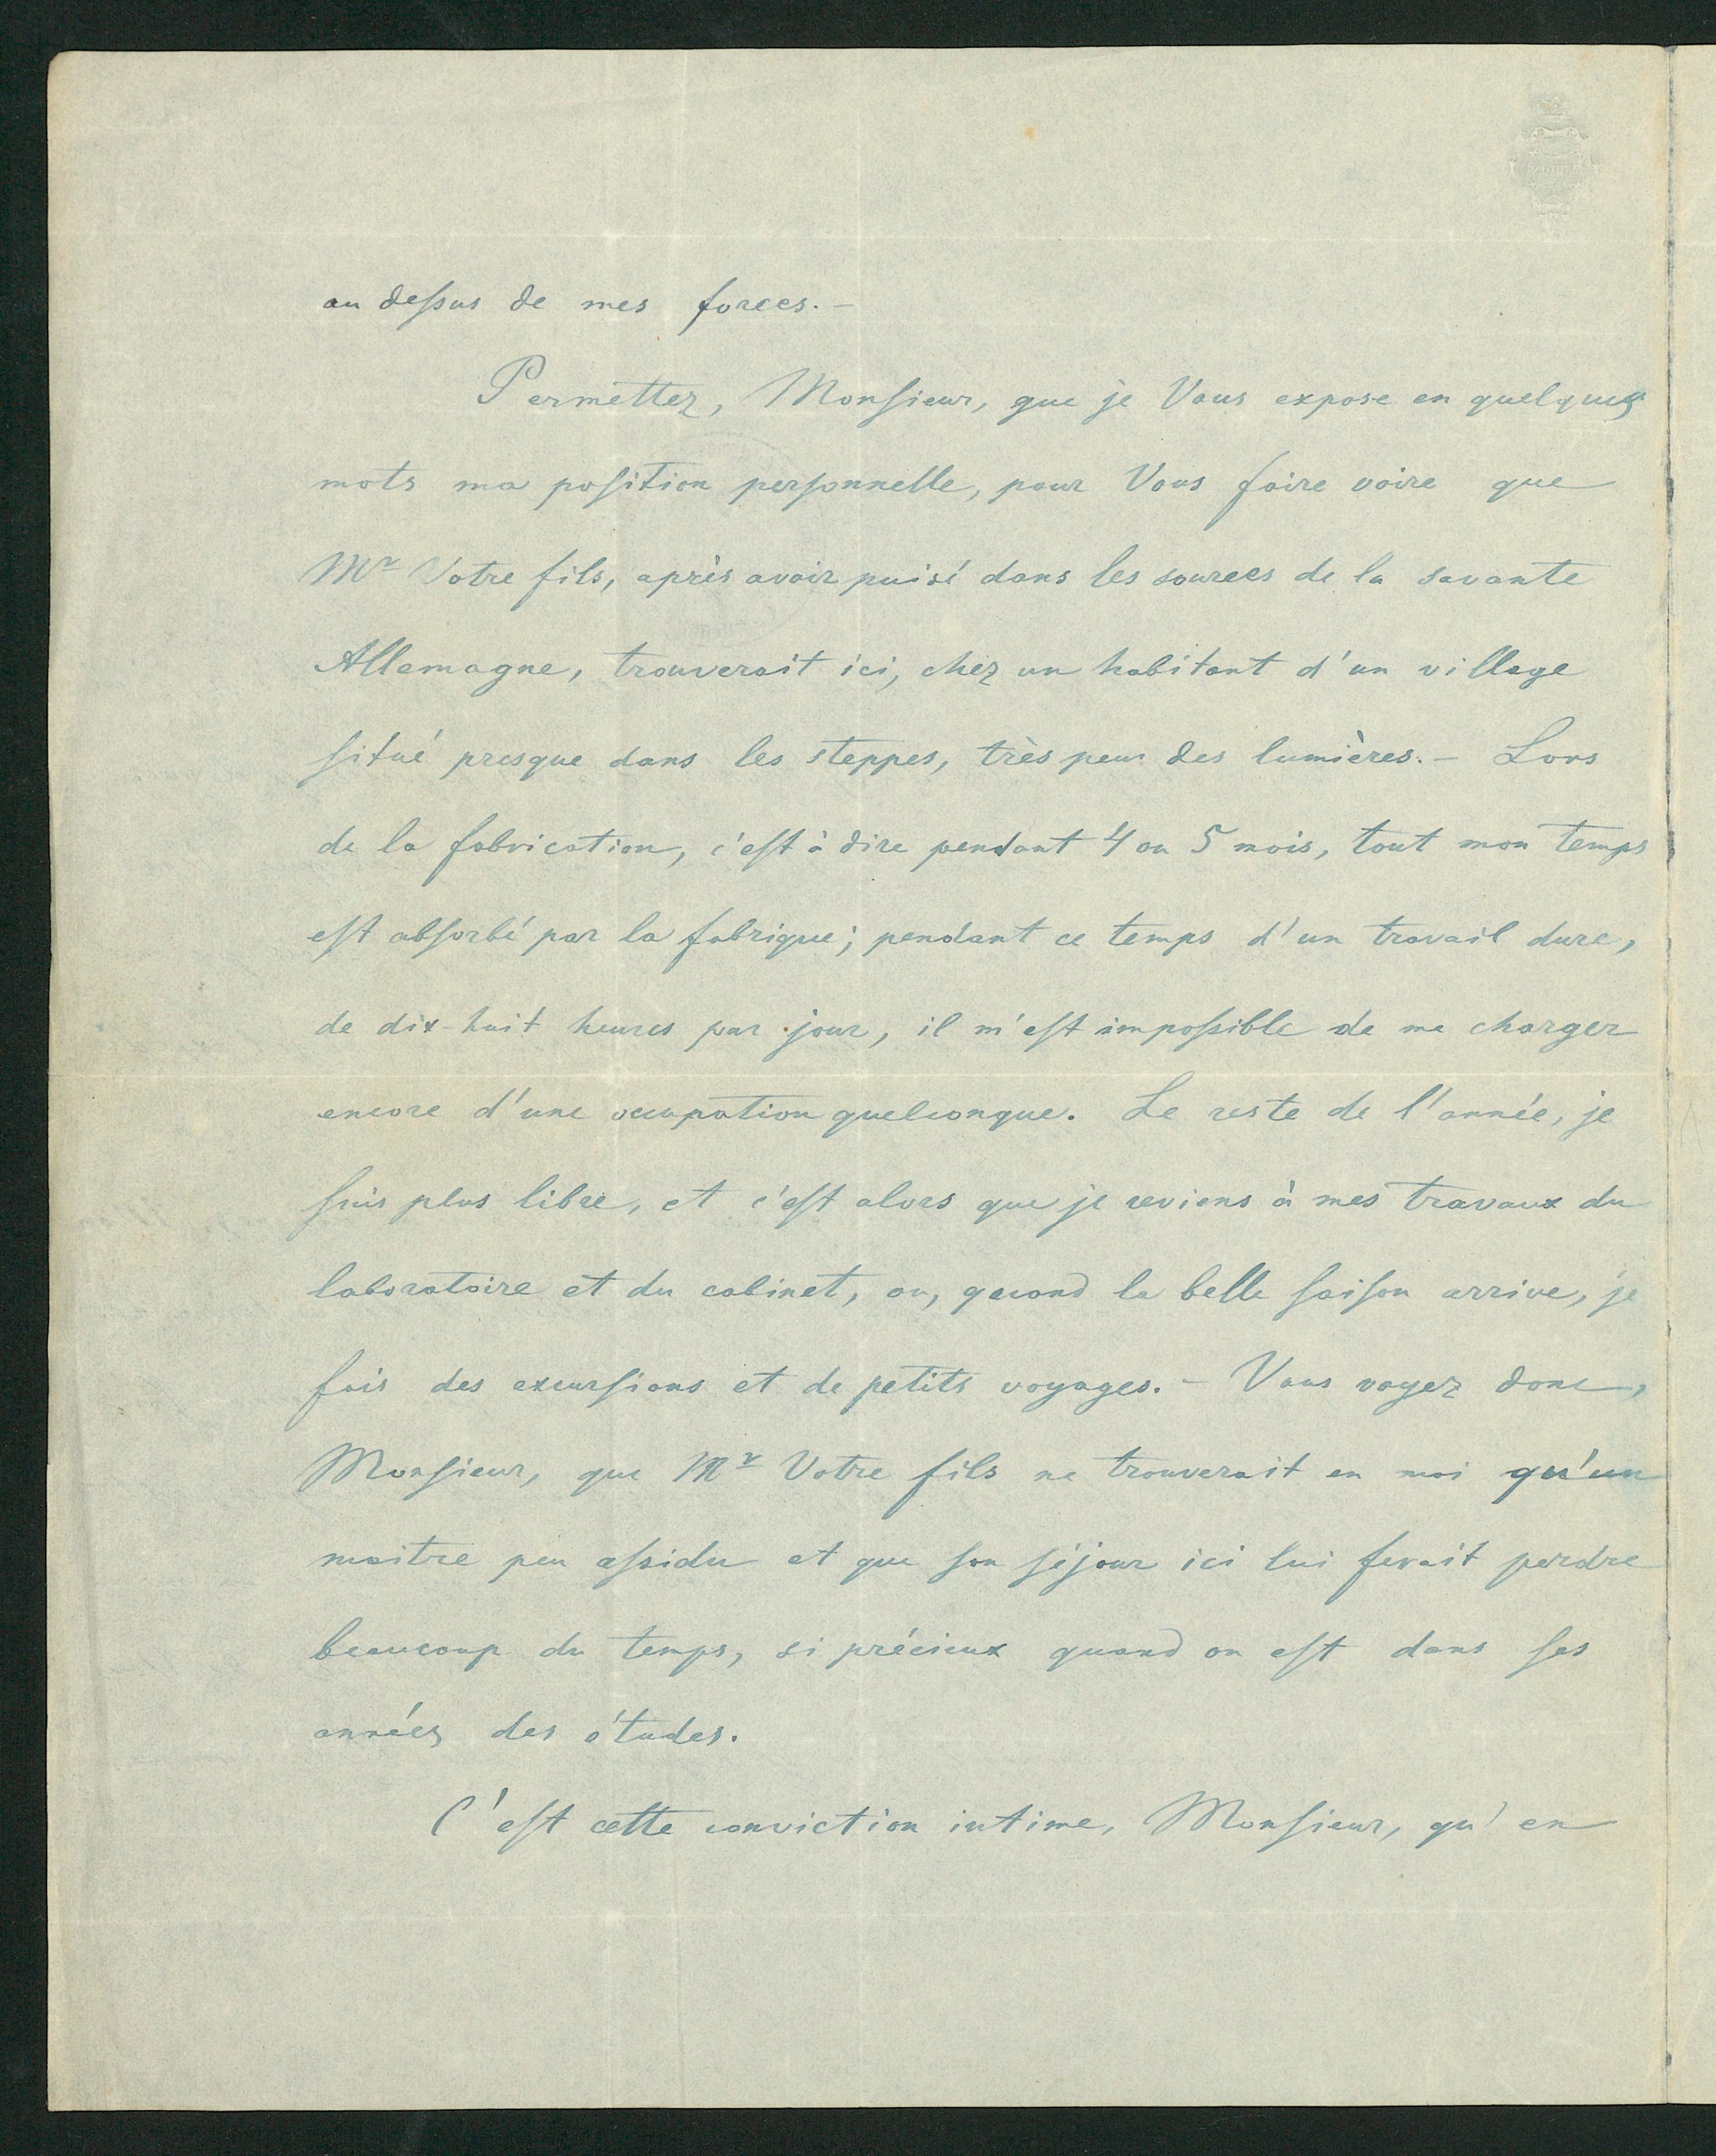 au dessus de mes forces. –
Permettez, Monsieur, que je Vous expose en quelques
mots ma position personnelle, pour Vous faire voire que
Mr Votre fils, après avoir puisé dans les sources de la savante
Allemagne, trouverait ici, chez un habitant d'un village
situé presque dans les steppes, très peu des lumières. – Lors
de la fabrication, c'est à dire pendant 4 ou 5 mois, tout mon temps
est absorbé par la fabrique; pendant ce temps d'un travail dure,
de dix-huit heures par jour, il m'est impossible de me charger
encore d'une occupation quelconque. Le reste de l'année, je
suis plus libre, et c'est alors que je reviens à mes travaux du
laboratoire et du cabinet, ou, quand la belle saison arrive, je
fais des excursions et de petits voyages. – Vous voyez donc,
Monsieur, que Mr Votre fils ne trouverait en moi qu'un
maitre peu assidu et que son séjour ici lui ferait perdre
beaucoup du temps, si précieux quand on est dans ses
années des études.
C'est cette conviction intime, Monsieur, qu'en